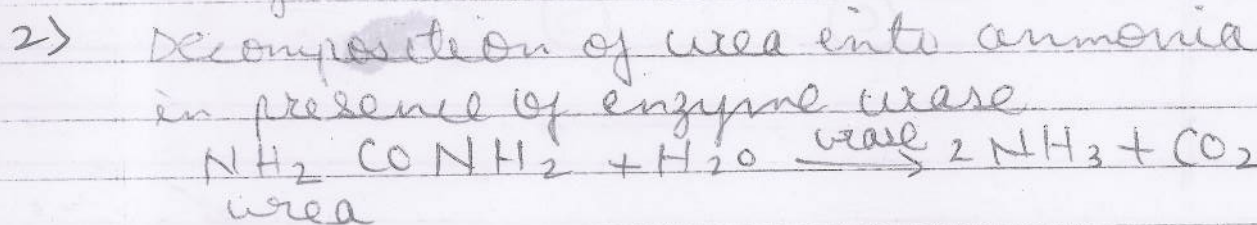 2) Decomposition of urea into ammonia
in presence of enzyme urase
NH2 CO NH2 + H2O urase→ 2 NH3 + CO2
urea